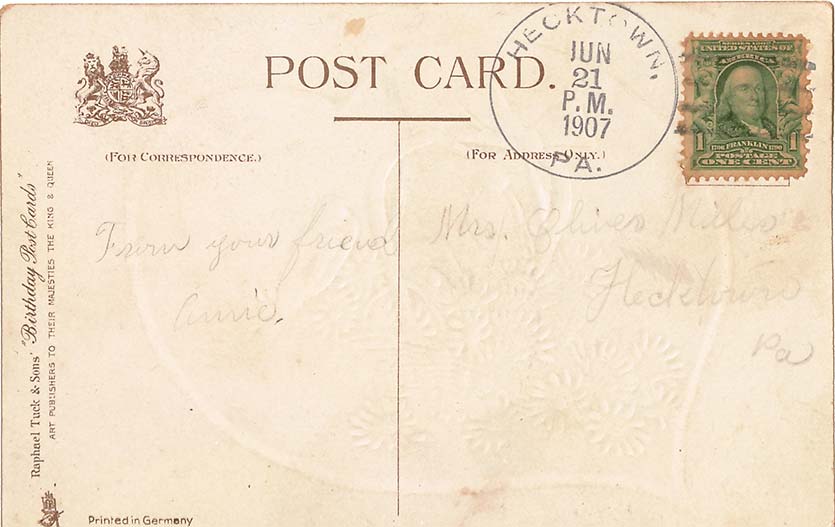 POST CARD.
HECKTOWN,
JUN
21
P.M.
1907
PA.
SERIES 1902
UNITED STATES OF
AMERICA
1 1706 FRANKLIN 1790 1
POSTAGE
ONE CENT
(FOR CORRESPONDENCE.)
(FOR ADDRESS ONLY.)
From your friend
Annie.
Mrs. Oliver Mills
Hecktown
Pa
Raphael Tuck & Sons' "Birthday Post Cards"
ART PUBLISHERS TO THEIR MAJESTIES THE KING & QUEEN
Printed in Germany